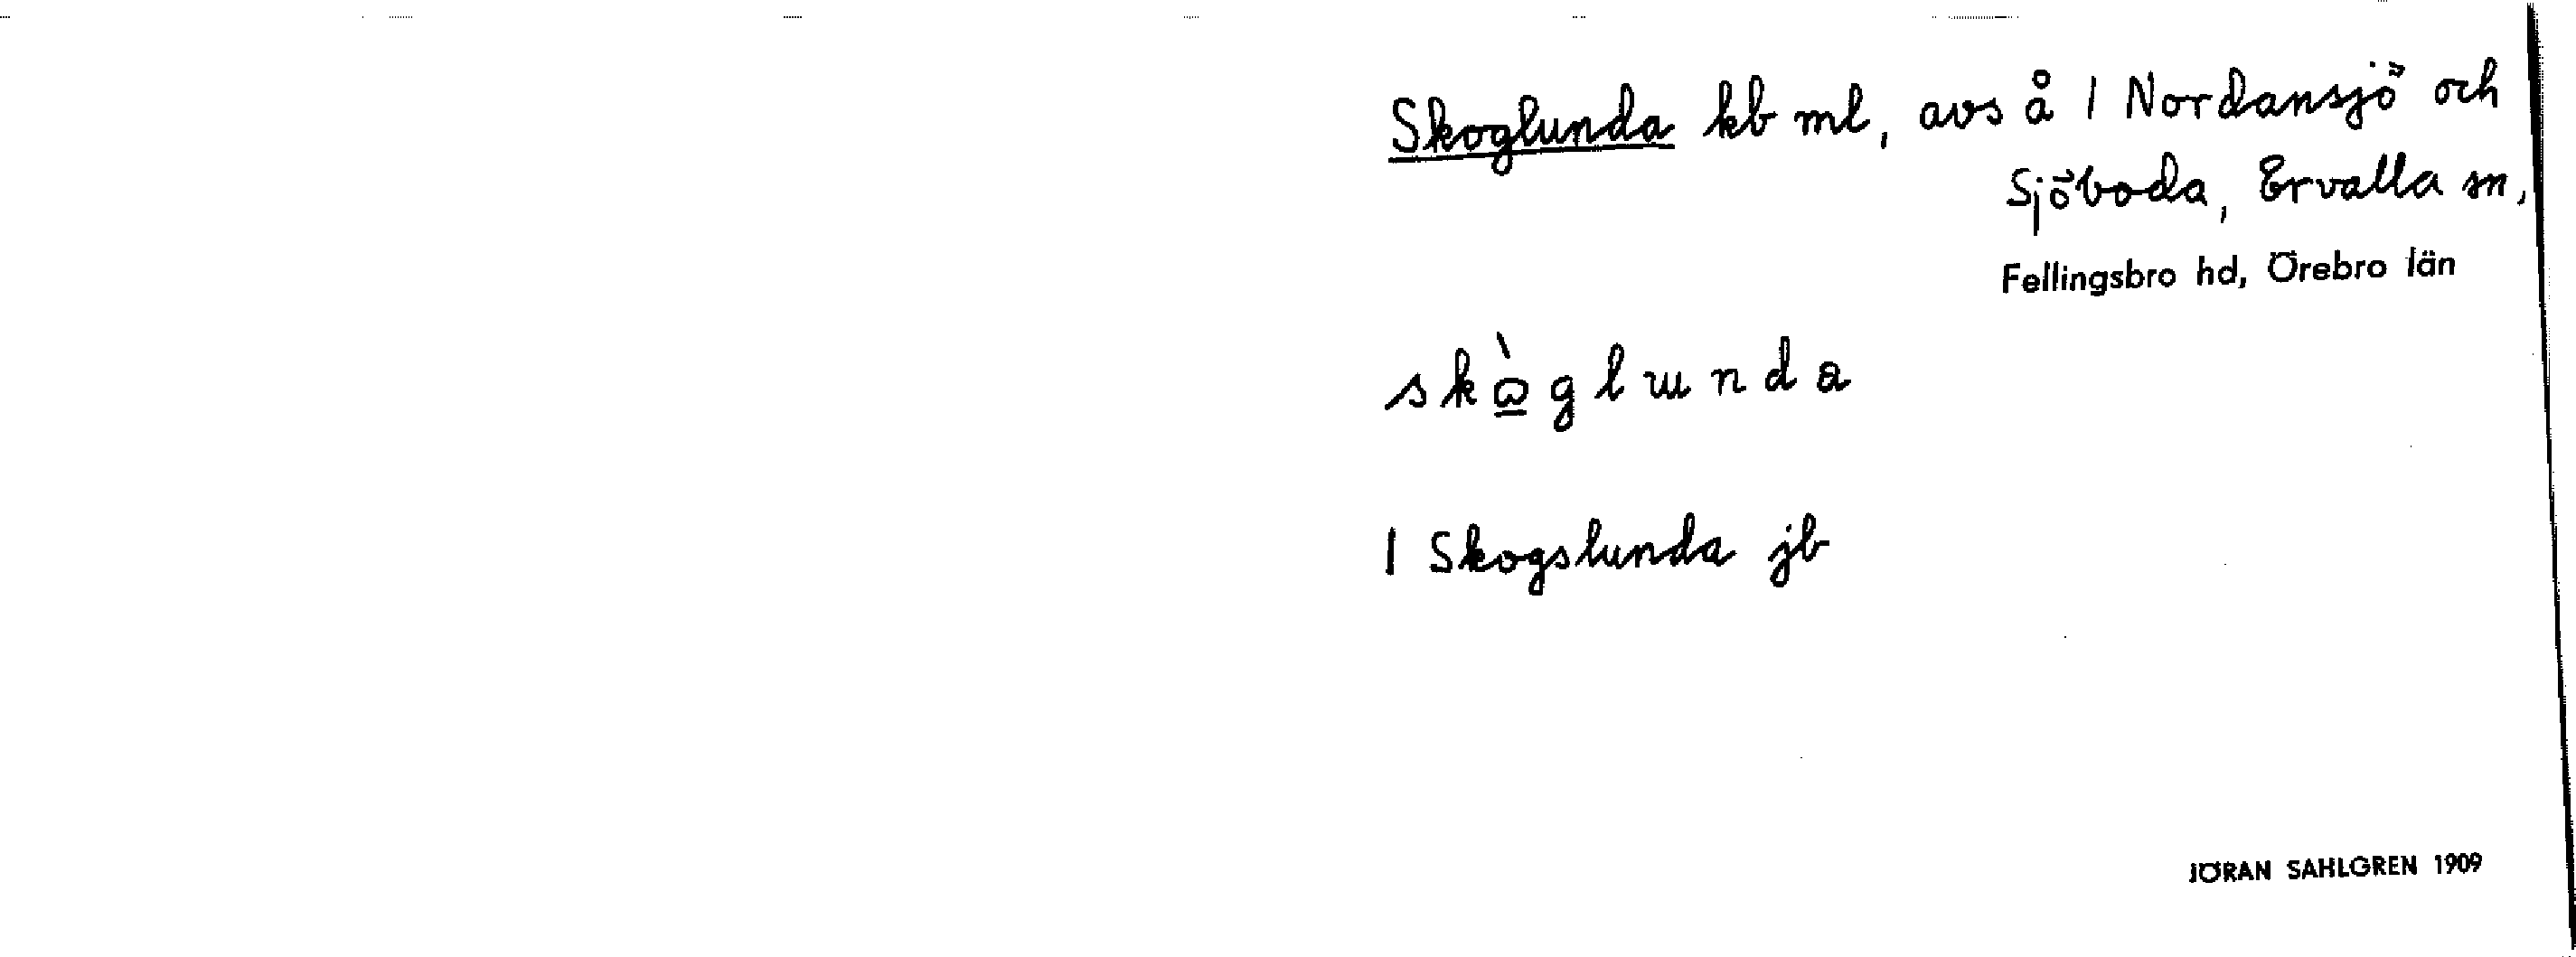 Skoglunda kb ml, avs å 1 Nordansjö och
Sjöboda, Ervalla sn,
Fellingsbro hd, Örebro län
1 Skogslunda jb
JÖRAN SAHLGREN 1909